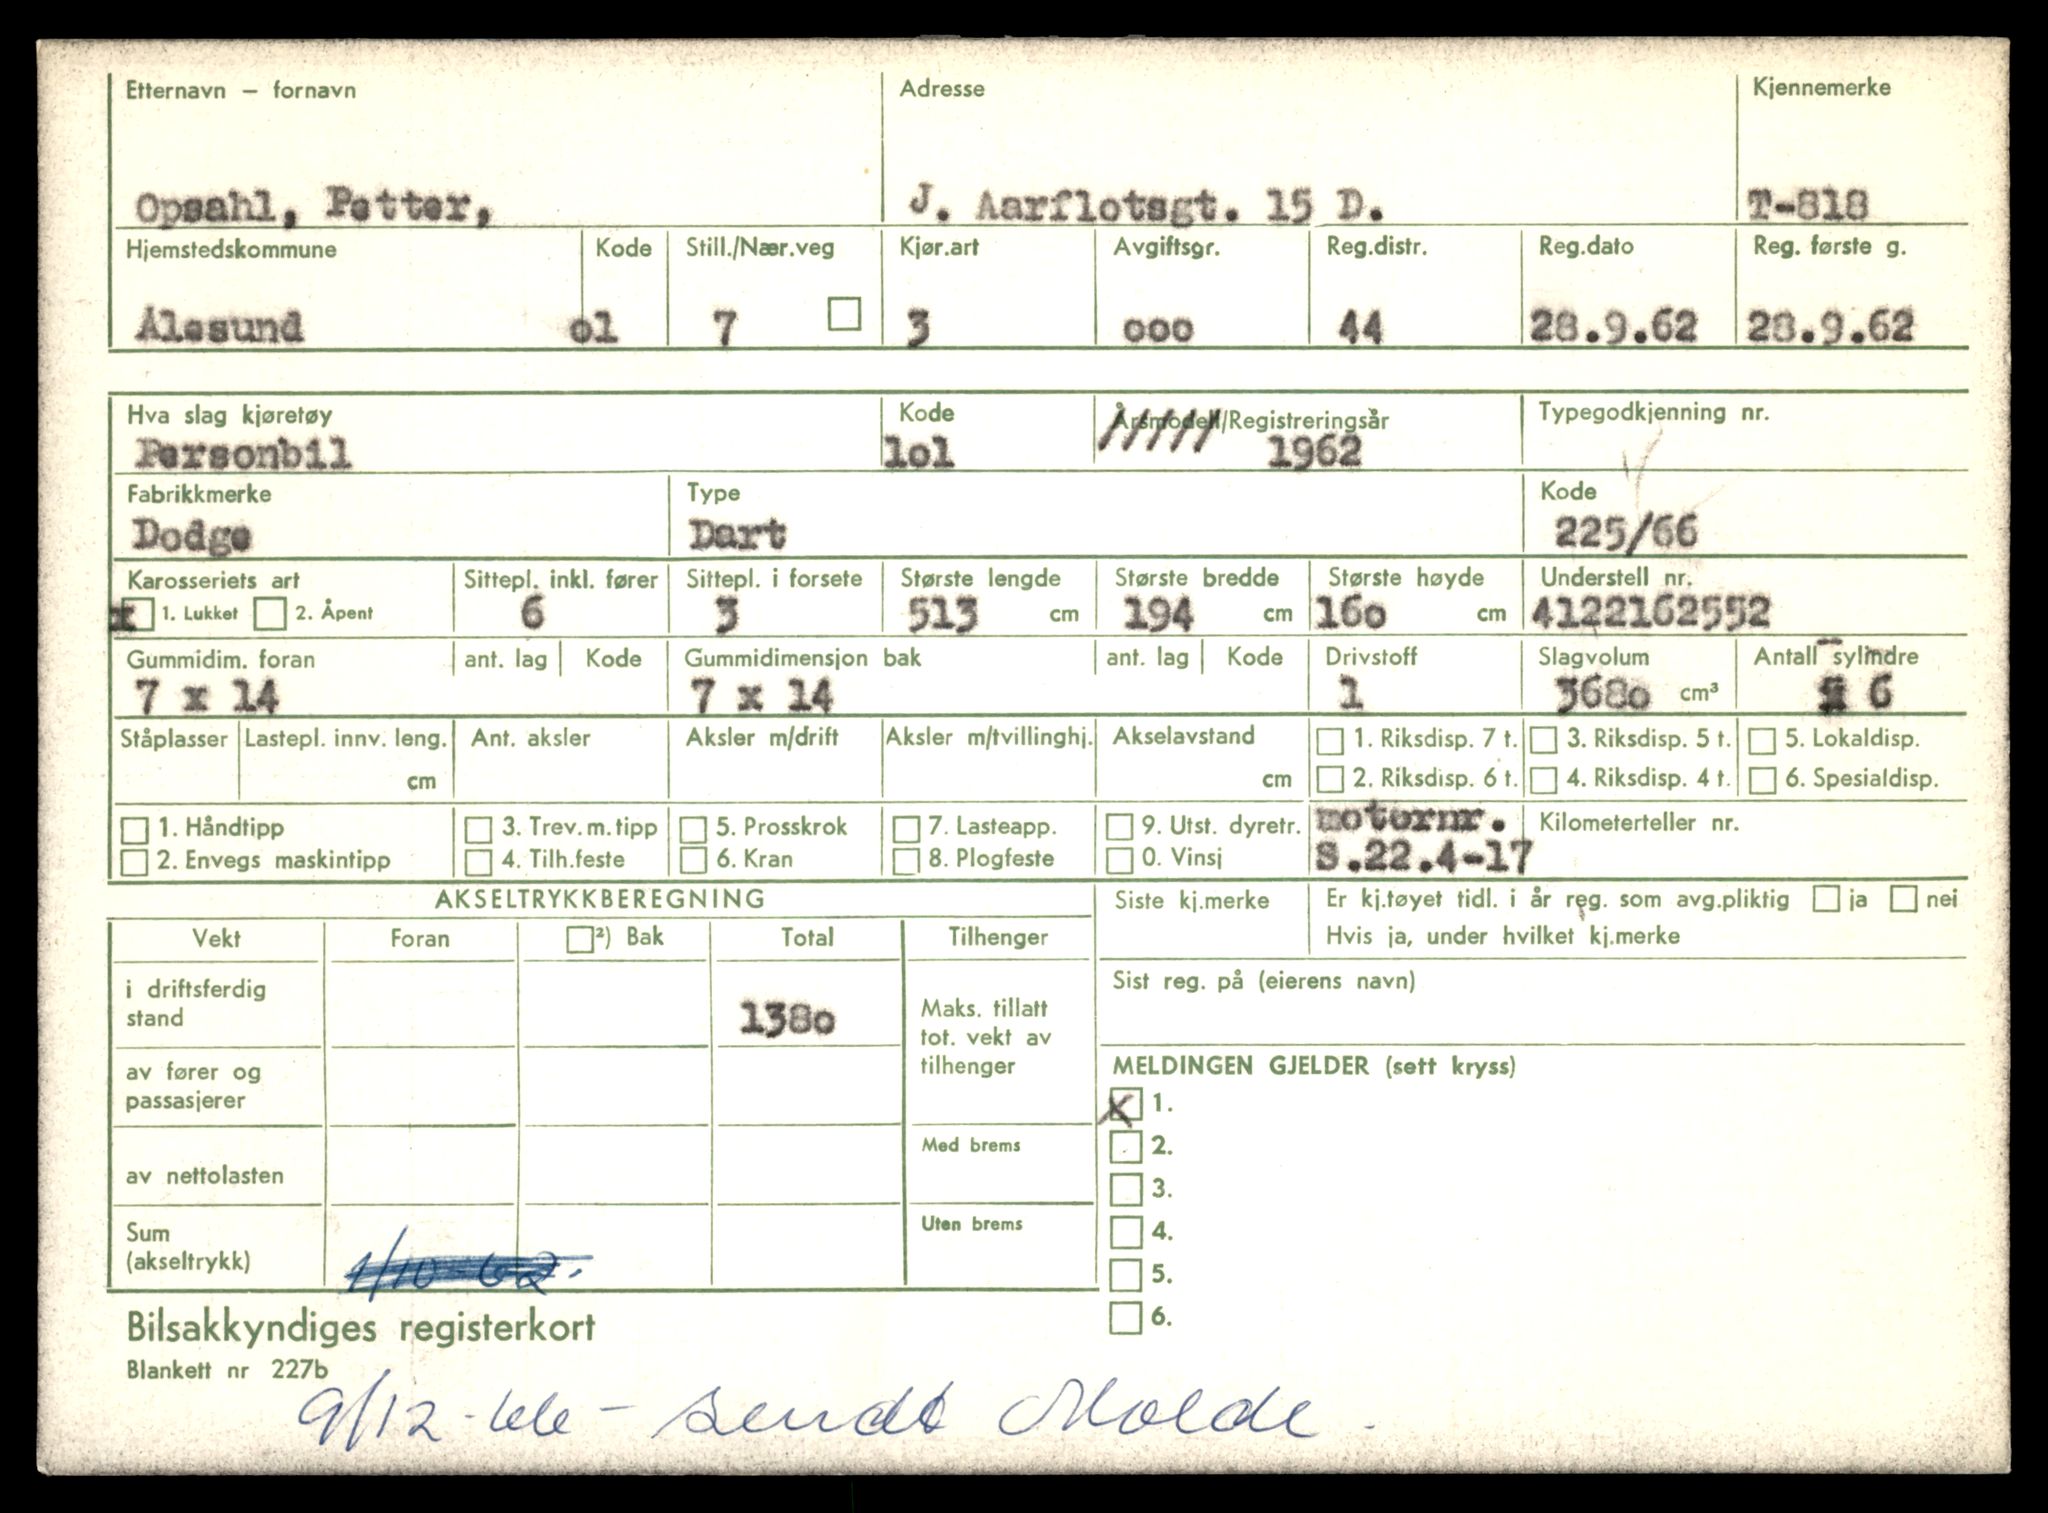 Etternavn – fornavn Adresse Kjennemerke
Opsahl, Petter, J. Aarflotsgt. 15 D. T-818
Hjemstedskommune Kode Still./Nær.veg Kjør.art Avgiftsgr. Reg.distr. Reg.dato Reg. første g.
Ålesund o1 7 3 ooo 44 28.9.62 28.9.62
Hva slag kjøretøy Kode Årsmodell/Registreringsår Typegodkjenning nr.
Personbil lol 1962
Fabrikkmerke Type Kode
Dodge Dart 225/66
Karosseriets art Sittepl. inkl. fører Sittepl. i forsete Største lengde Største bredde Største høyde Understell nr.
x 1. Lukket 2. Åpent 6 3 513 cm 194 cm 16o cm 4122162552
Gummidim. foran ant. lag Kode Gummidimensjon bak ant. lag Kode Drivstoff Slagvolum Antall sylindre
7 x 14 7 x 14 1 368o cm³ 6
Ståplasser Lastepl. innv. leng. Ant. aksler Aksler m/drift Aksler m/tvillinghj. Akselavstand 1. Riksdisp. 7 t. 3. Riksdisp. 5 t. 5. Lokaldisp.
cm cm 2. Riksdisp. 6 t. 4. Riksdisp. 4 t. 6. Spesialdisp.
1. Håndtipp 3. Trev.m.tipp 5. Prosskrok 7. Lasteapp. 9. Utst. dyretr. motornr. Kilometerteller nr.
2. Envegs maskintipp 4. Tilh.feste 6. Kran 8. Plogfeste 0. Vinsj S.22.4-17
AKSELTRYKKBEREGNING Siste kj.merke Er kj.tøyet tidl. i år reg. som avg.pliktig ja nei
Vekt Foran ²) Bak Total Tilhenger Hvis ja, under hvilket kj.merke
i driftsferdig stand 138o Maks. tillatt tot. vekt av tilhenger Sist reg. på (eierens navn)
av fører og passasjerer MELDINGEN GJELDER (sett kryss)
x 1.
av nettolasten Med brems 2.
3.
Sum (akseltrykk) 1/10-62. Uten brems 4.
5.
6.
Bilsakkyndiges registerkort
Blankett nr 227b
9/12-66 – sendt Molde.